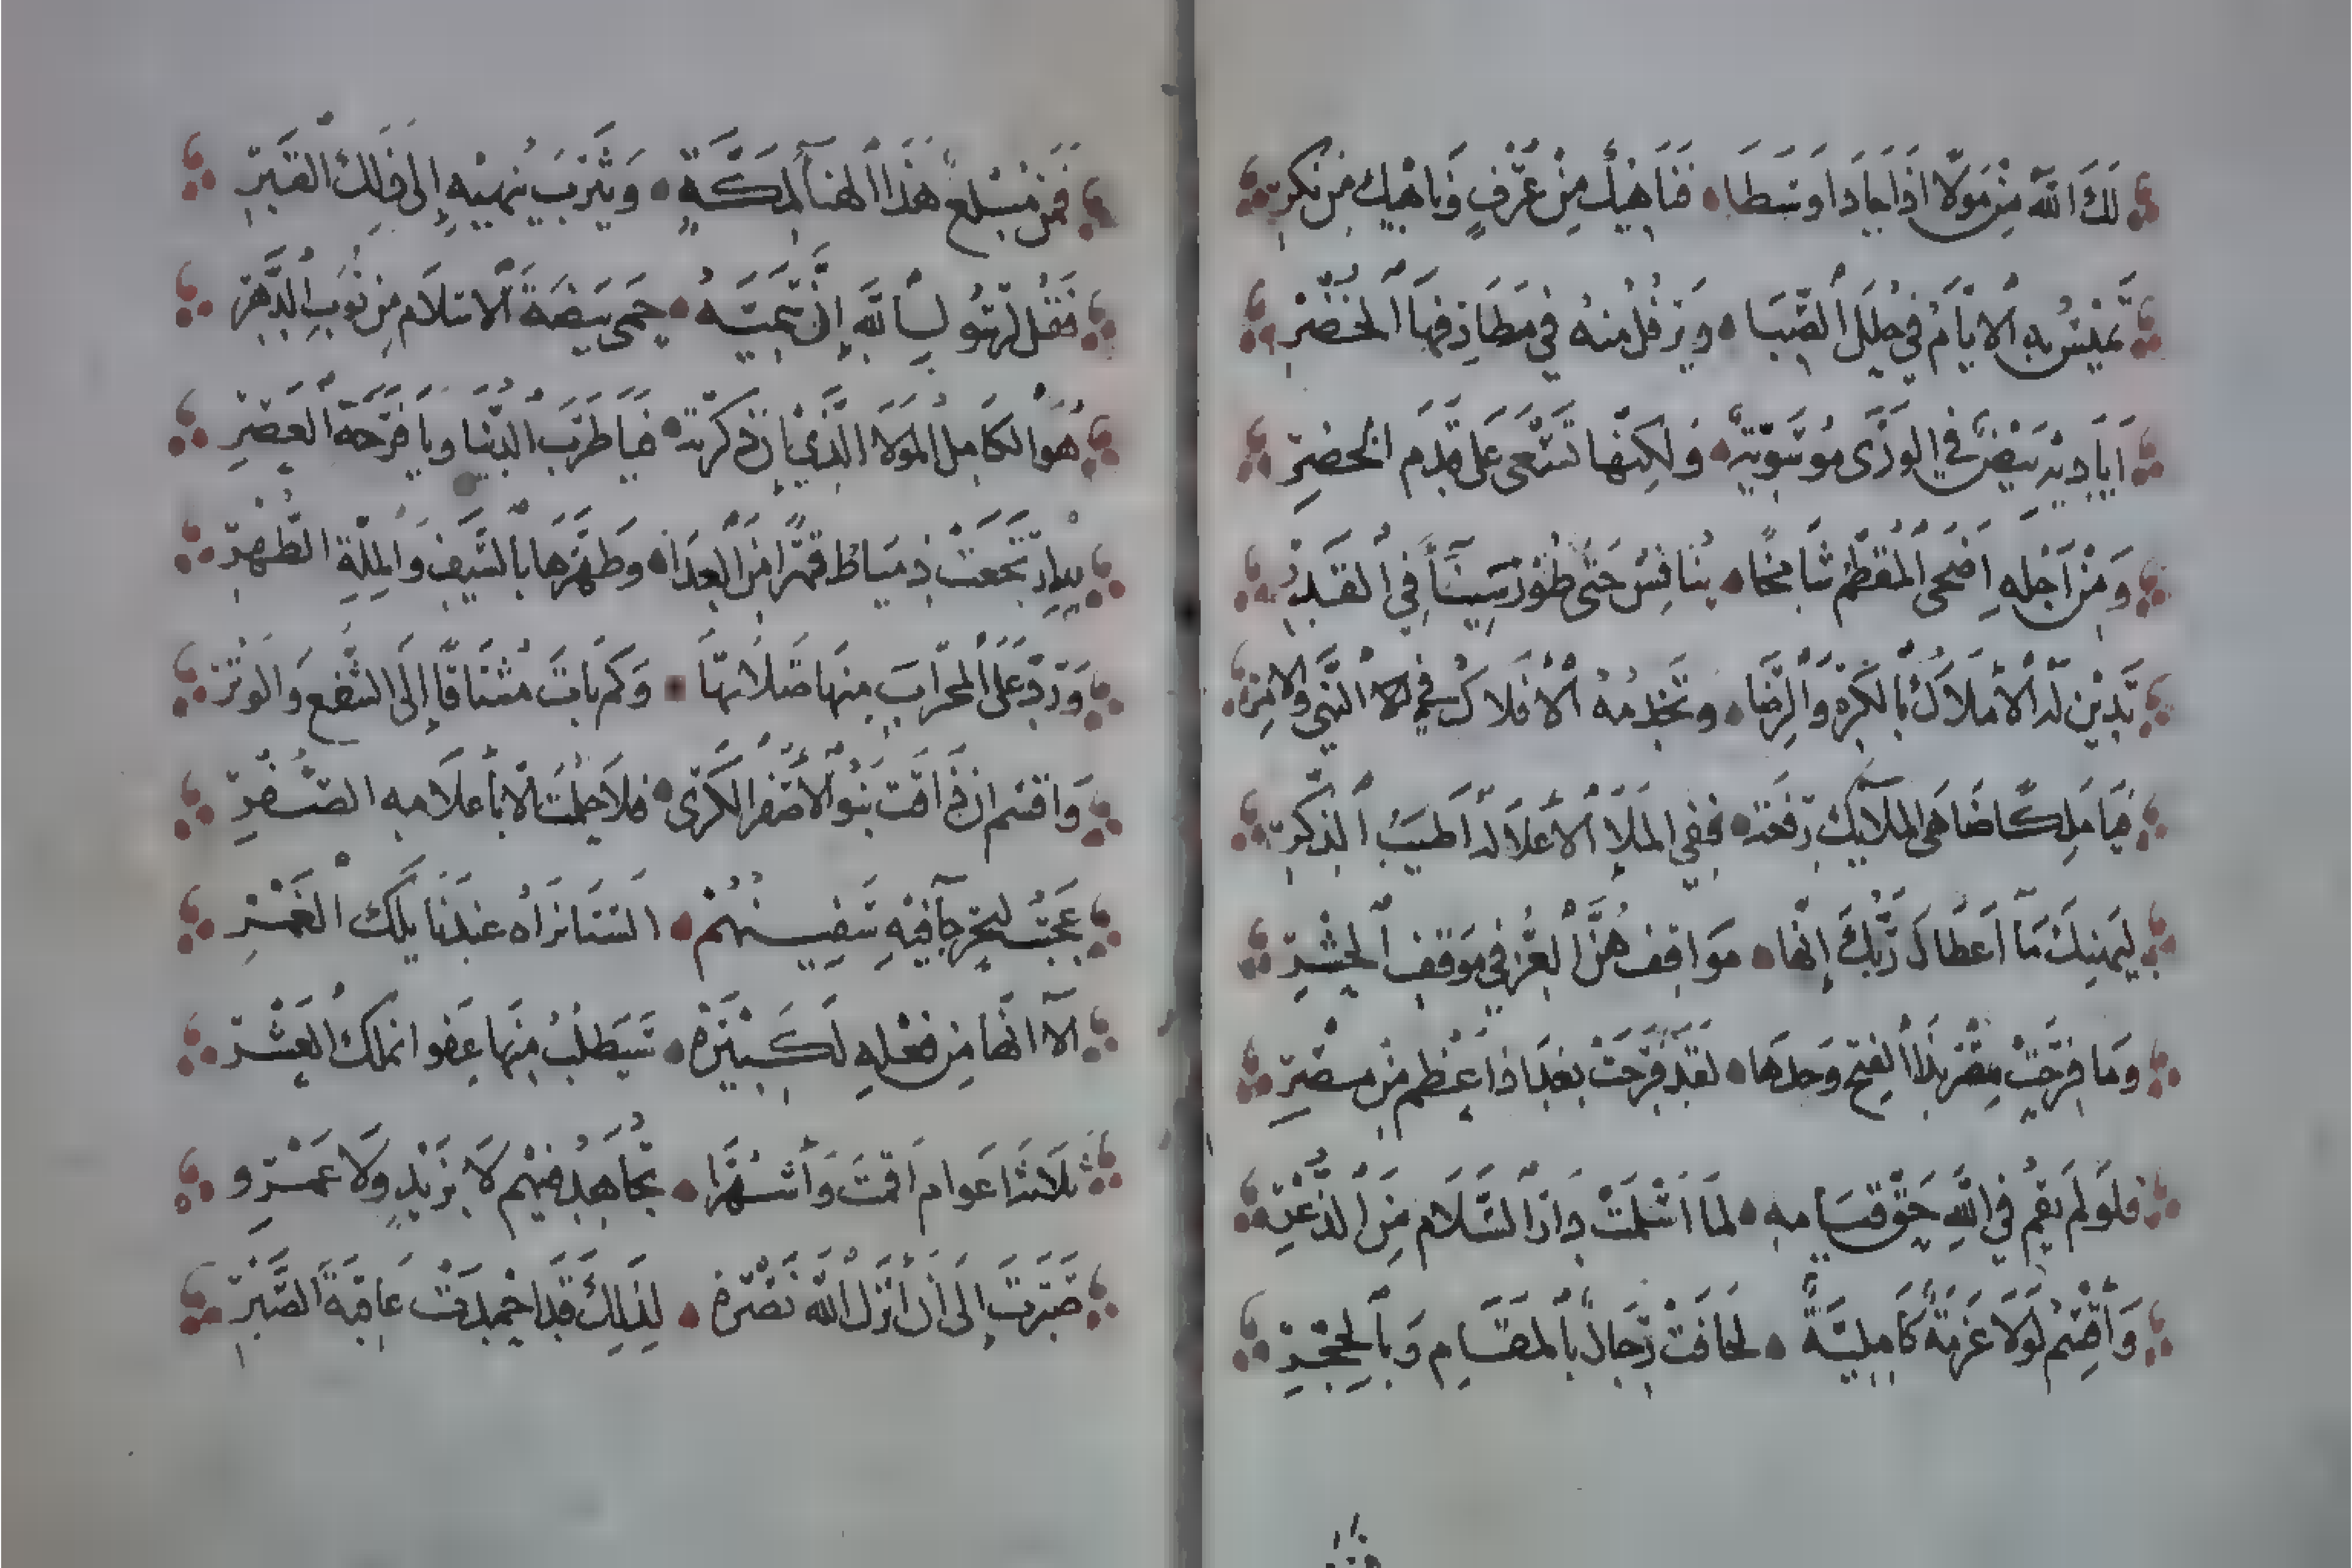 لَكَ اللّٰهُ مِنْ مَوْلًا اِذَا جَادَ اَوْ سَطَا • فَنَاهِيكَ مِنْ عُرْفٍ وَنَاهِيكَ مِنْ نُكْرِ
تَمِيْسُ بِهِ الْاَيَّامُ فِي حُلَلِ الصِّبَا • وَتَرْفُلُ مِنْهُ فِي مَطَارِفِهَا الْخُضْرِ
اَيَادِيْهِ بِيْضٌ فِي الْوَرَى مُوْسَوِيَّةٌ • وَلَكِنَّهَا تَسْعَى عَلَى قَدَمِ الْخِضْرِ
وَمِنْ اَجْلِهِ اَضْحَى الْمُقَطَّمُ شَامِخًا • يُنَافِسُ حَتَّى طُوْرَ سِيْنَاَ فِي الْقَدْرِ
تَدِيْنُ لَهُ الْاَمْلَاكُ بِالْكَرْهِ وَالرِّضَا • وَتَخْدِمُهُ الْاَفْلَاكُ فِي النَّهْيِ وَالْاَمْرِ
فَيَا مَلِكًا ضَاهَى الْمَلَايِكَ رِفْعَةً • فَفِي الْمَلَاِ الْاَعْلَا لَهُ اَطْيَبُ الذِّكْرِ
لِيَهْنِكَ مَا اَعْطَاكَ رَبُّكَ اِنَّهَا • مَوَاقِفُ هُنَّ الْغُرُّ فِي مَوْقِفِ الْحَشْرِ
وَمَا فَرِحَتْ مِصْرُ بِذَا الْفَتْحِ وَحْدَهَا • لَقَدْ فَرِحَتْ بَغْدَاذُ اَعْظَمَ مِنْ مِصْرِ
فَلَوْ لَمْ يَقُمْ فِي اللّٰهِ حَقَّ قِيَامِهِ • لَمَا اَسْلَمَتْ دَارُ السَّلَامِ مِنَ الذُّعْرِ
وَاُقْسِمُ لَوْلَا عَزْمَةٌ كَامِلِيَّةٌ • لَخَافَتْ رِجَالٌ بِالْمَقَامِ وَبِالْحِجْرِ
فَمَنْ مُبْلِغٌ هَذَا الْهَنَاَ لِمَكَّةٍ • وَيَثْرِبَ يُنْهِيْهِ اِلَى ذَلِكَ الْقَبْرِ
فَقُلْ لِرَسُوْلِ اللّٰهِ اِنَّ سَمِيَّهُ • حَمَى بَيْضَةَ الْاِسْلَامِ مِنْ نُوَبِ الدَّهْرِ
هُوَ الْكَامِلُ الْمَوْلَا الَّذِي اِنْ ذَكَرْتَهُ • فَيَا طَرَبَ الدُّنْيَا وَيَا فَرْحَةَ الْعَصْرِ
بِهِ ارْتَجَعَتْ دِمْيَاطُ قَهْرًا مِنَ الْعِدَا • وَطَهَّرَهَا بِالسَّيْفِ وَالْمِلَّةِ الطُّهْرِ
وَرَدَّ عَلَى الْمِحْرَابِ مِنْهَا صَلَاتَهَا • وَكَمْ بَاتَ مُشْتَاقًا اِلَى الشَّفْعِ وَالْوَتْرِ
وَاُقْسِمُ اِنْ ذَاقَتْ بَنُو الْاَصْفَرِ الْكَرَى • فَلَا حَلُمَتْ اِلَّا بِاَعْلَامِهِ الصُّفْرِ
عَجِبْتُ لِبَحْرٍ جَآءَ فِيْهِ سَفِيْنُهُمْ • اَلَسْنَا نَرَاهُ عِنْدَنَا مَلِكَ الْغَمْرِ
اَلَا اِنَّهَا مِنْ فِعْلِهِ لَكَبِيْرَةٌ • سَيَطْلُبُ مِنْهَا عَفْوَ اَنْمُلِكَ الْعَشْرِ
ثَلَاثَةَ اَعْوَامٍ اَقَمْتَ وَاَشْهُرًا • تُجَاهِدُ فِيْهِمْ لَا بِزَيْدٍ وَلَا عَمْرِو
صَبَرْتَ اِلَى اَنْ اَنْزَلَ اللّٰهُ نَصْرَهُ • لِذَلِكَ قَدْ اَحْمَدْتَ عَاقِبَةَ الصَّبْرِ